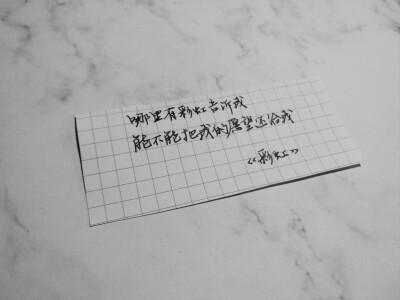 哪里有彩虹告诉我
能不能把我的愿望还给我
《彩虹》